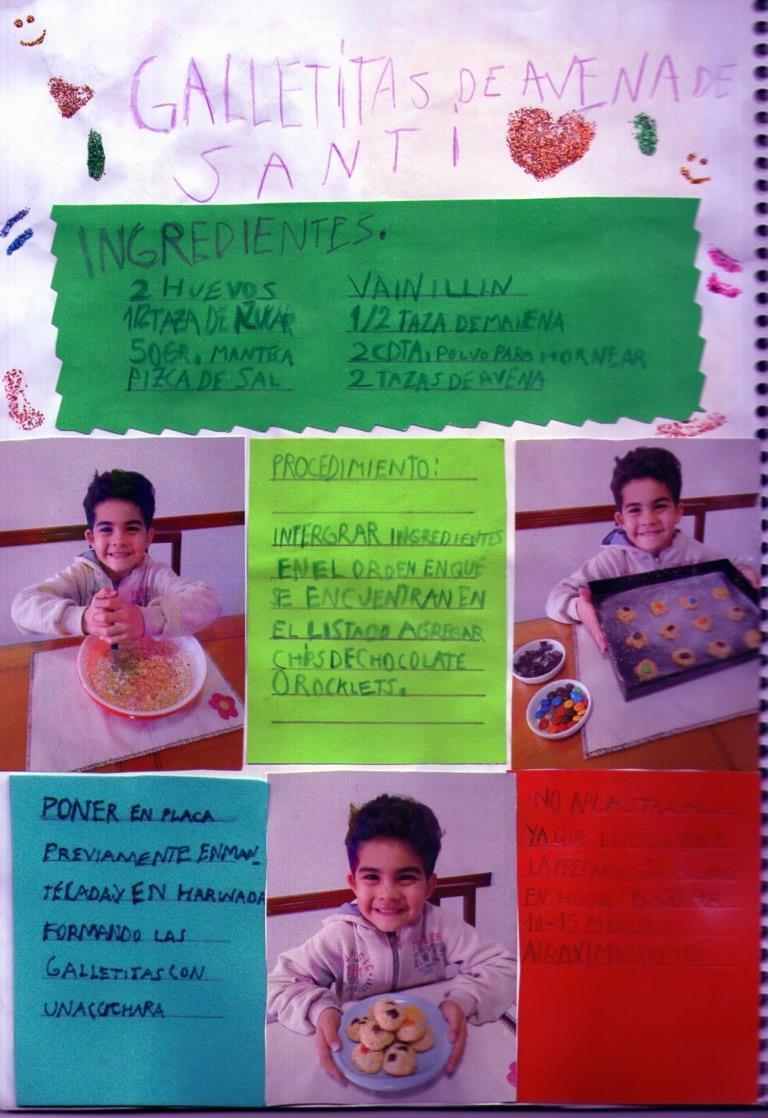 GALLETITAS DE AVENA DE
SANTI
INGREDIENTES.
2 HUEVOS
1/2 TAZA DE AZUCAR
50GR. MANTECA
PIZCA DE SAL
VAINILLIN
1/2 TAZA DE MAIENA
2 CDTA. POLVO PARA HORNEAR
2 TAZAS DE AVENA
PROCEDIMIENTO:
INTERGRAR INGREDIENTES
EN EL ORDEN EN QUE
SE ENCUENTRAN EN
EL LISTADO AGREGAR
CHIPS DE CHOCOLATE
O ROCKLETS.
PONER EN PLACA
PREVIAMENTE ENMAN_
TECADA Y EN HARINADA
FORMANDO LAS
GALLETITAS CON
UNA CUCHARA
NO APLASTAR
YA QUE
LA
EN HORNO
10-15 MINUTOS
APROXIMADAMENTE